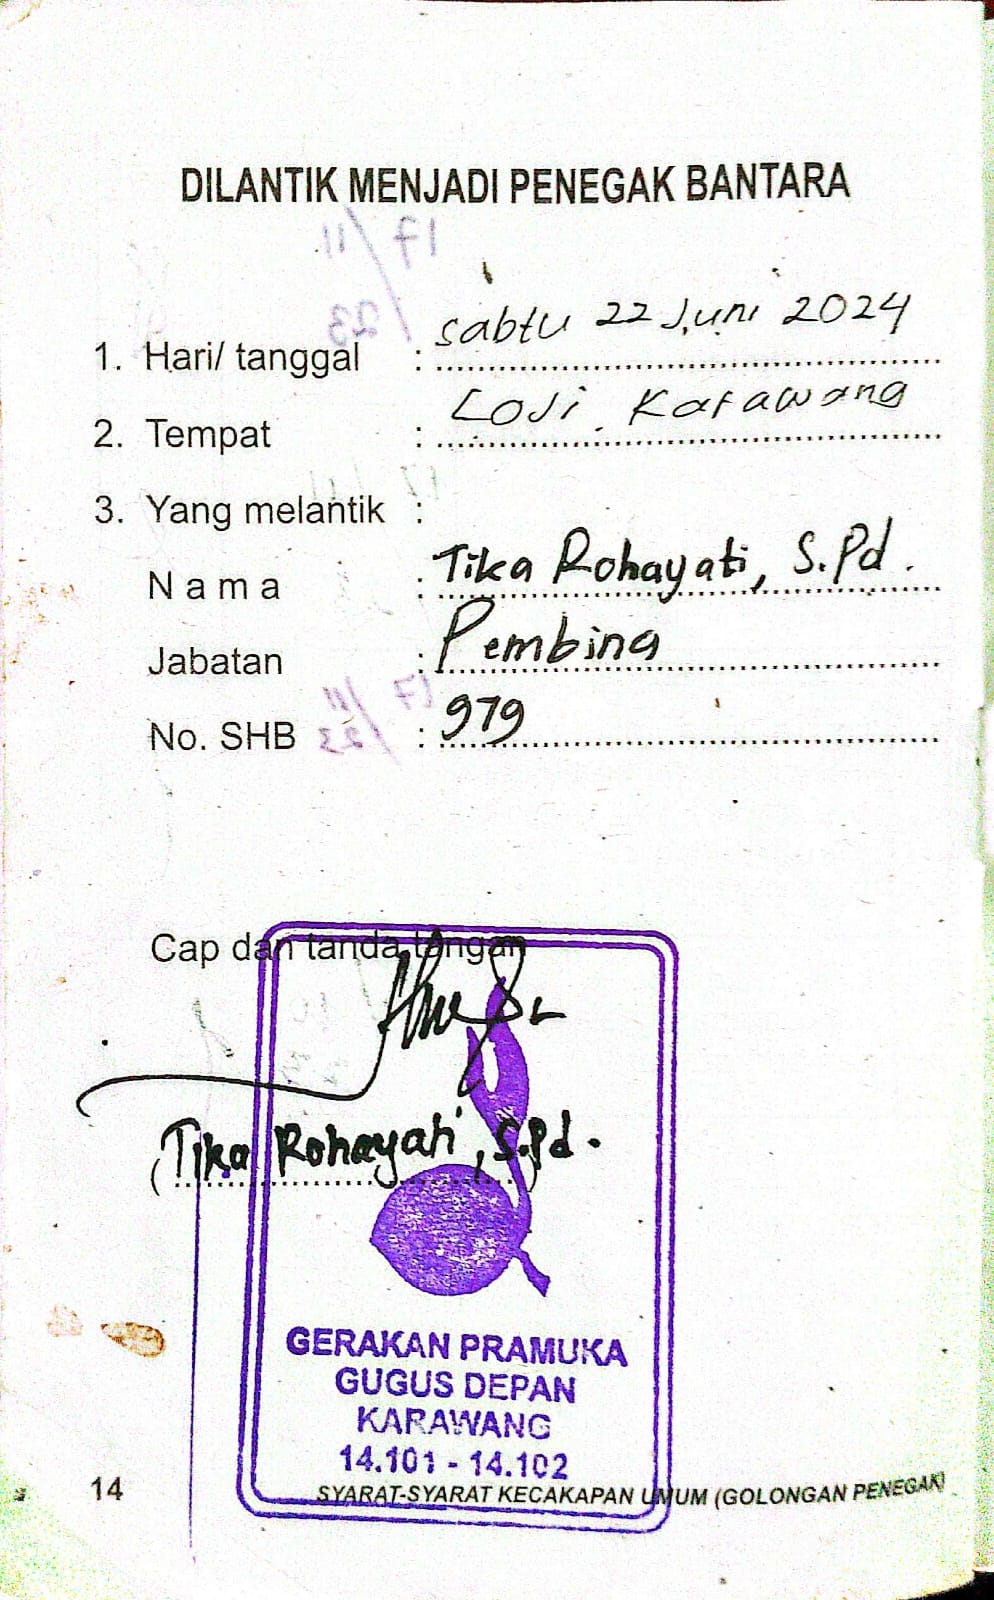 DILANTIK MENJADI PENEGAK BANTARA
1. Hari/ tanggal : Sabtu 22 Juni 2024
2. Tempat : Loji. Karawang
3. Yang melantik :
N a m a : Tika Rohayati, S.Pd.
Jabatan : Pembina
No. SHB : 979
Cap dan tanda tangan
(Tika Rohayati, S.Pd.)
GERAKAN PRAMUKA
GUGUS DEPAN
KARAWANG
14.101 - 14.102
14 SYARAT-SYARAT KECAKAPAN UMUM (GOLONGAN PENEGAK)